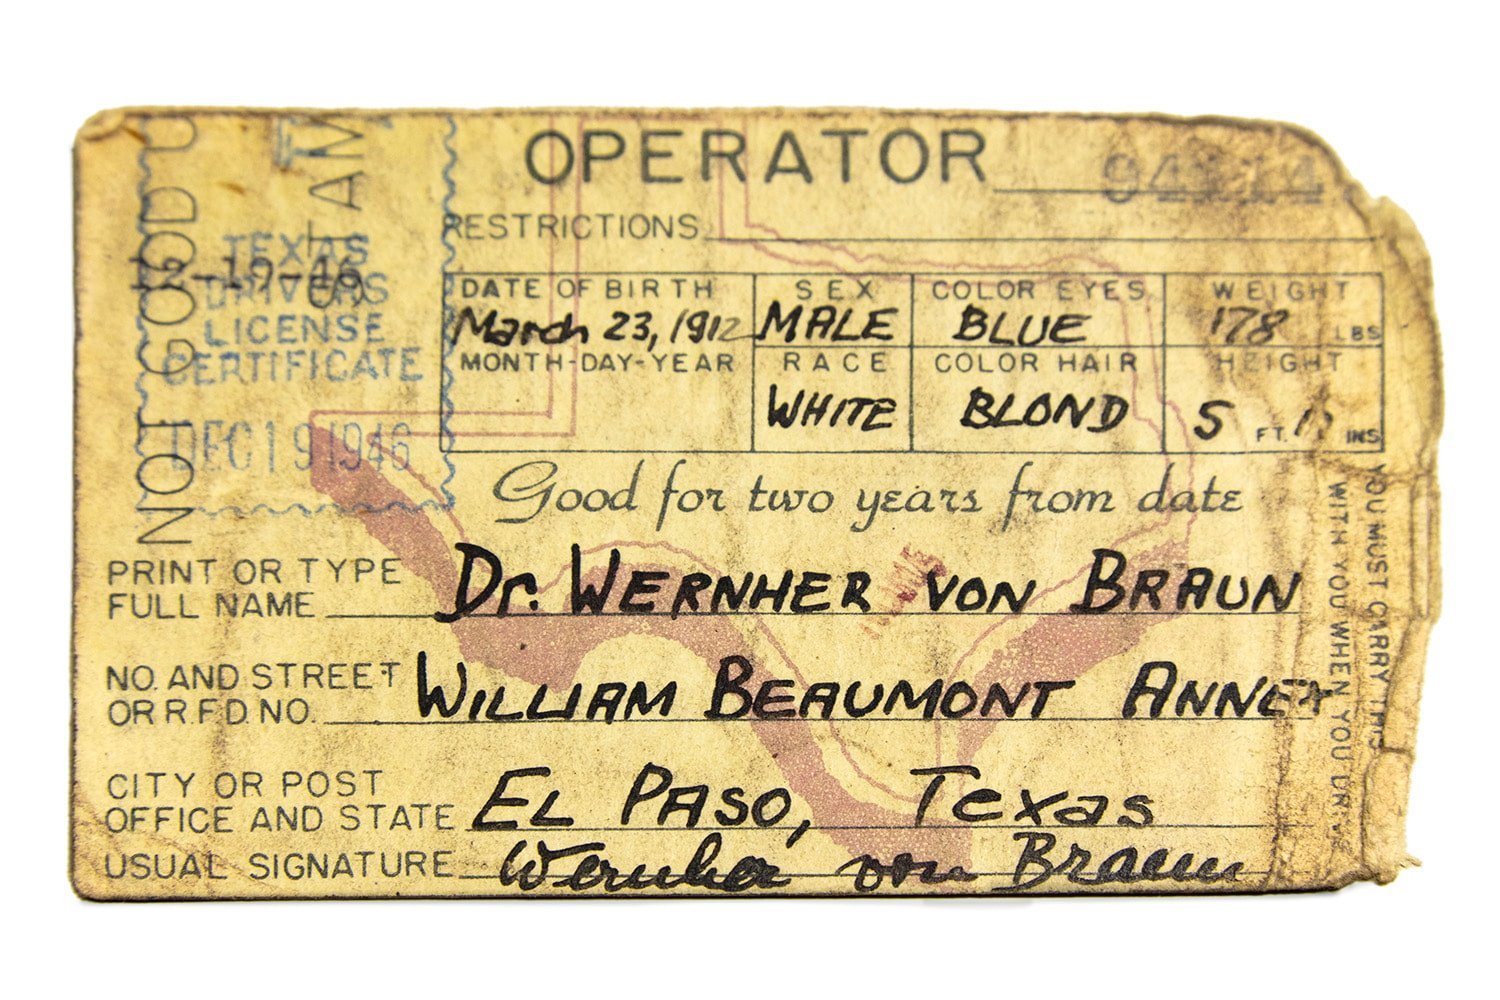 OPERATOR
RESTRICTIONS
NOT GOOD
TEXAS
12-19-46
DRIVERS
LICENSE
CERTIFICATE
DEC 19 1946
DATE OF BIRTH SEX COLOR EYES WEIGHT
March 23, 1912 MALE BLUE 178 LBS
MONTH-DAY-YEAR RACE COLOR HAIR HEIGHT
WHITE BLOND 5 FT. INS
Good for two years from date
PRINT OR TYPE
FULL NAME Dr. WERNHER VON BRAUN
NO. AND STREET
OR R.F.D NO. WILLIAM BEAUMONT ANNEX
CITY OR POST
OFFICE AND STATE EL PASO, Texas
USUAL SIGNATURE Wernher von Braun
YOU MUST CARRY THIS
WITH YOU WHEN YOU DRIVE